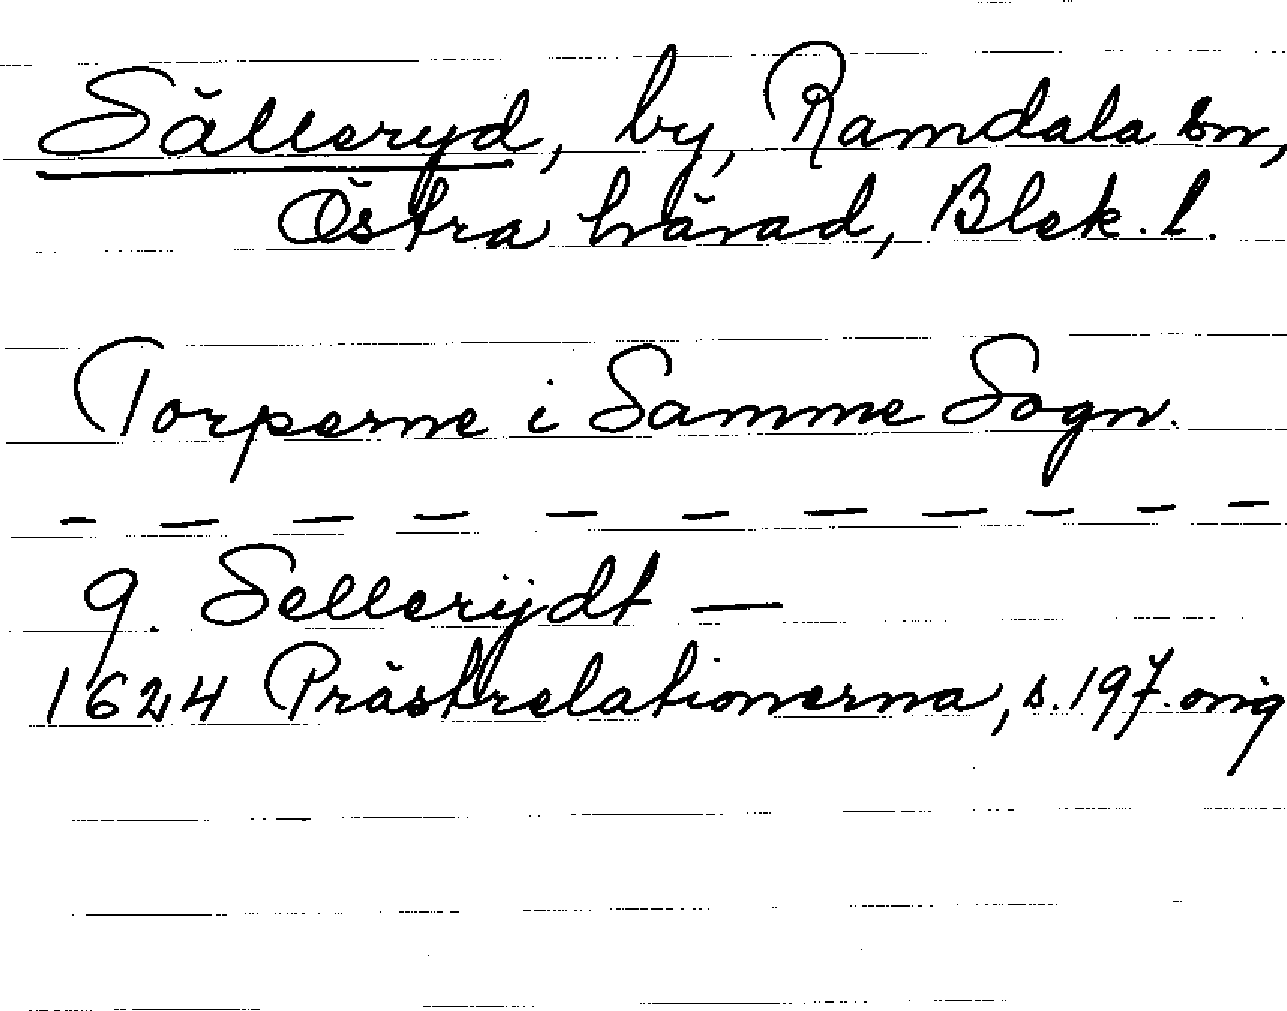 Sälleryd, by, Ramdala sn,
Östra härad, Blek. l.
Torperne i Samme Sogn.
- - - - - - - - - - -
9. Sellerÿdt —
1624 Prästrelationerna, s. 197. orig